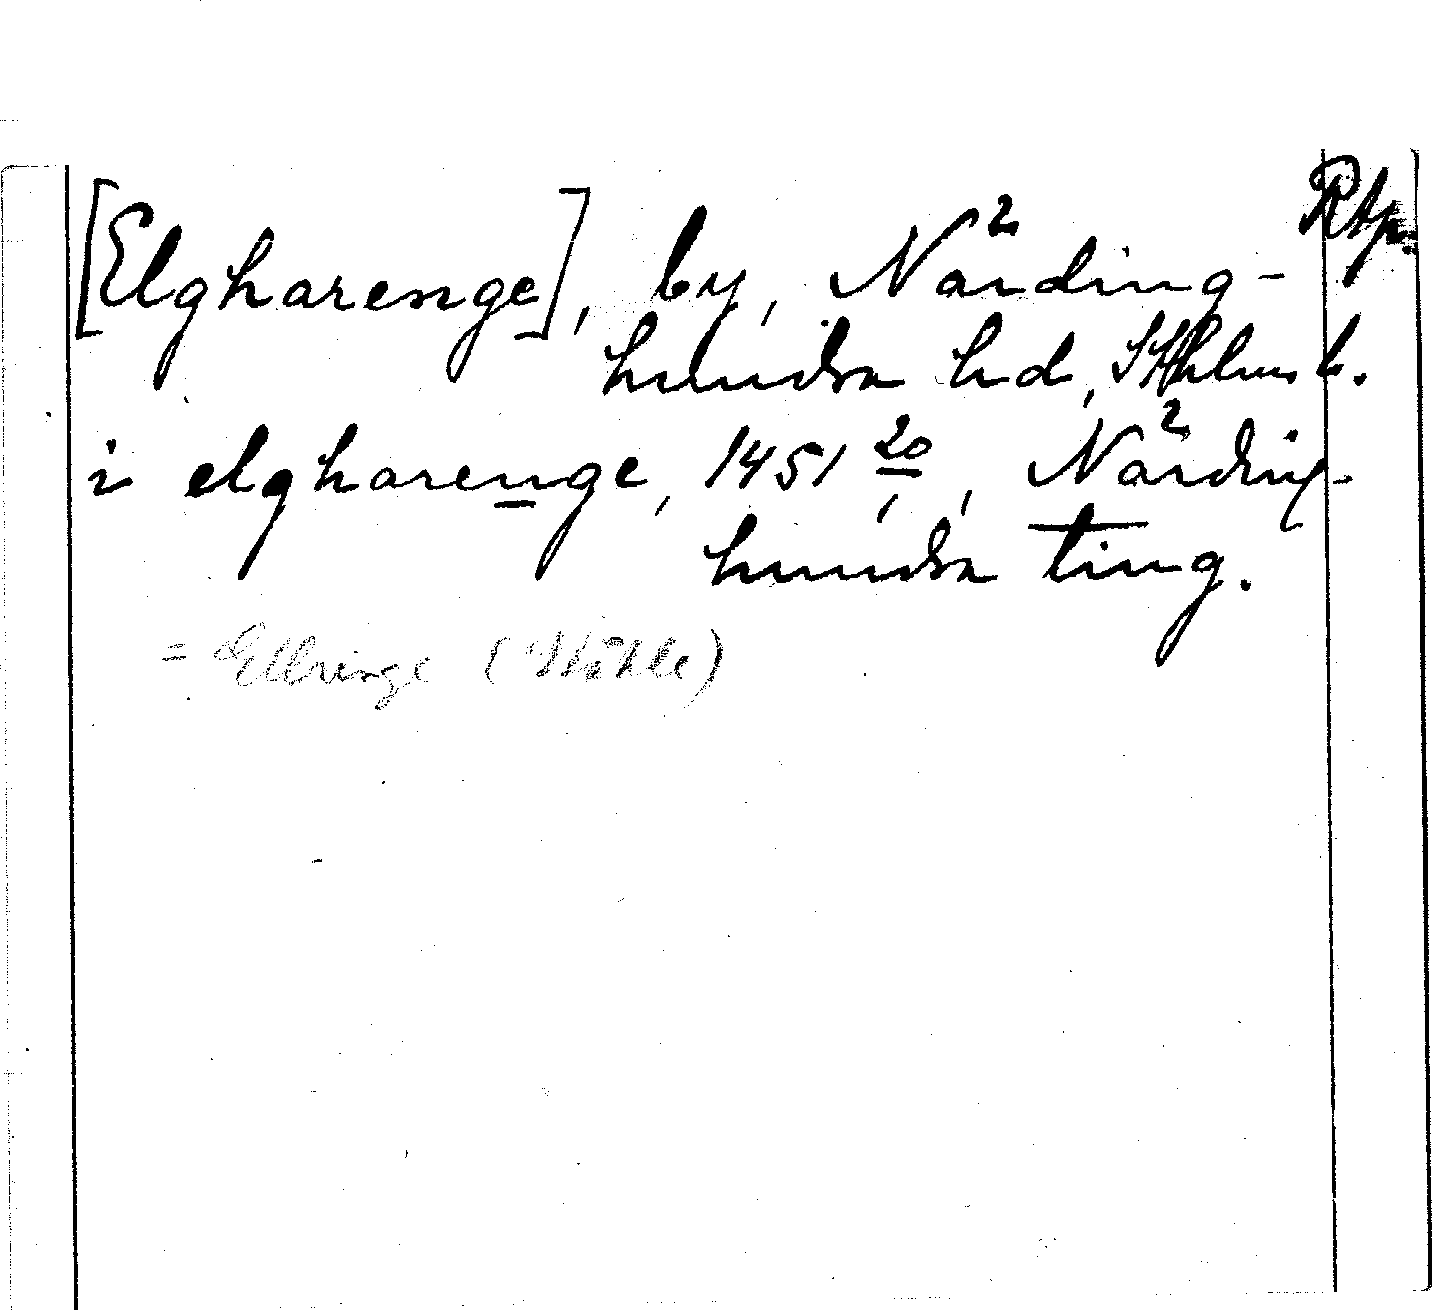 Rtp.
[Elgharenge], by, Närding-
hundra hd, Sthlms l.
i elgharenge, 1451 20/, , Närding-
hundra ting.
= Ellringe (Ståhle)